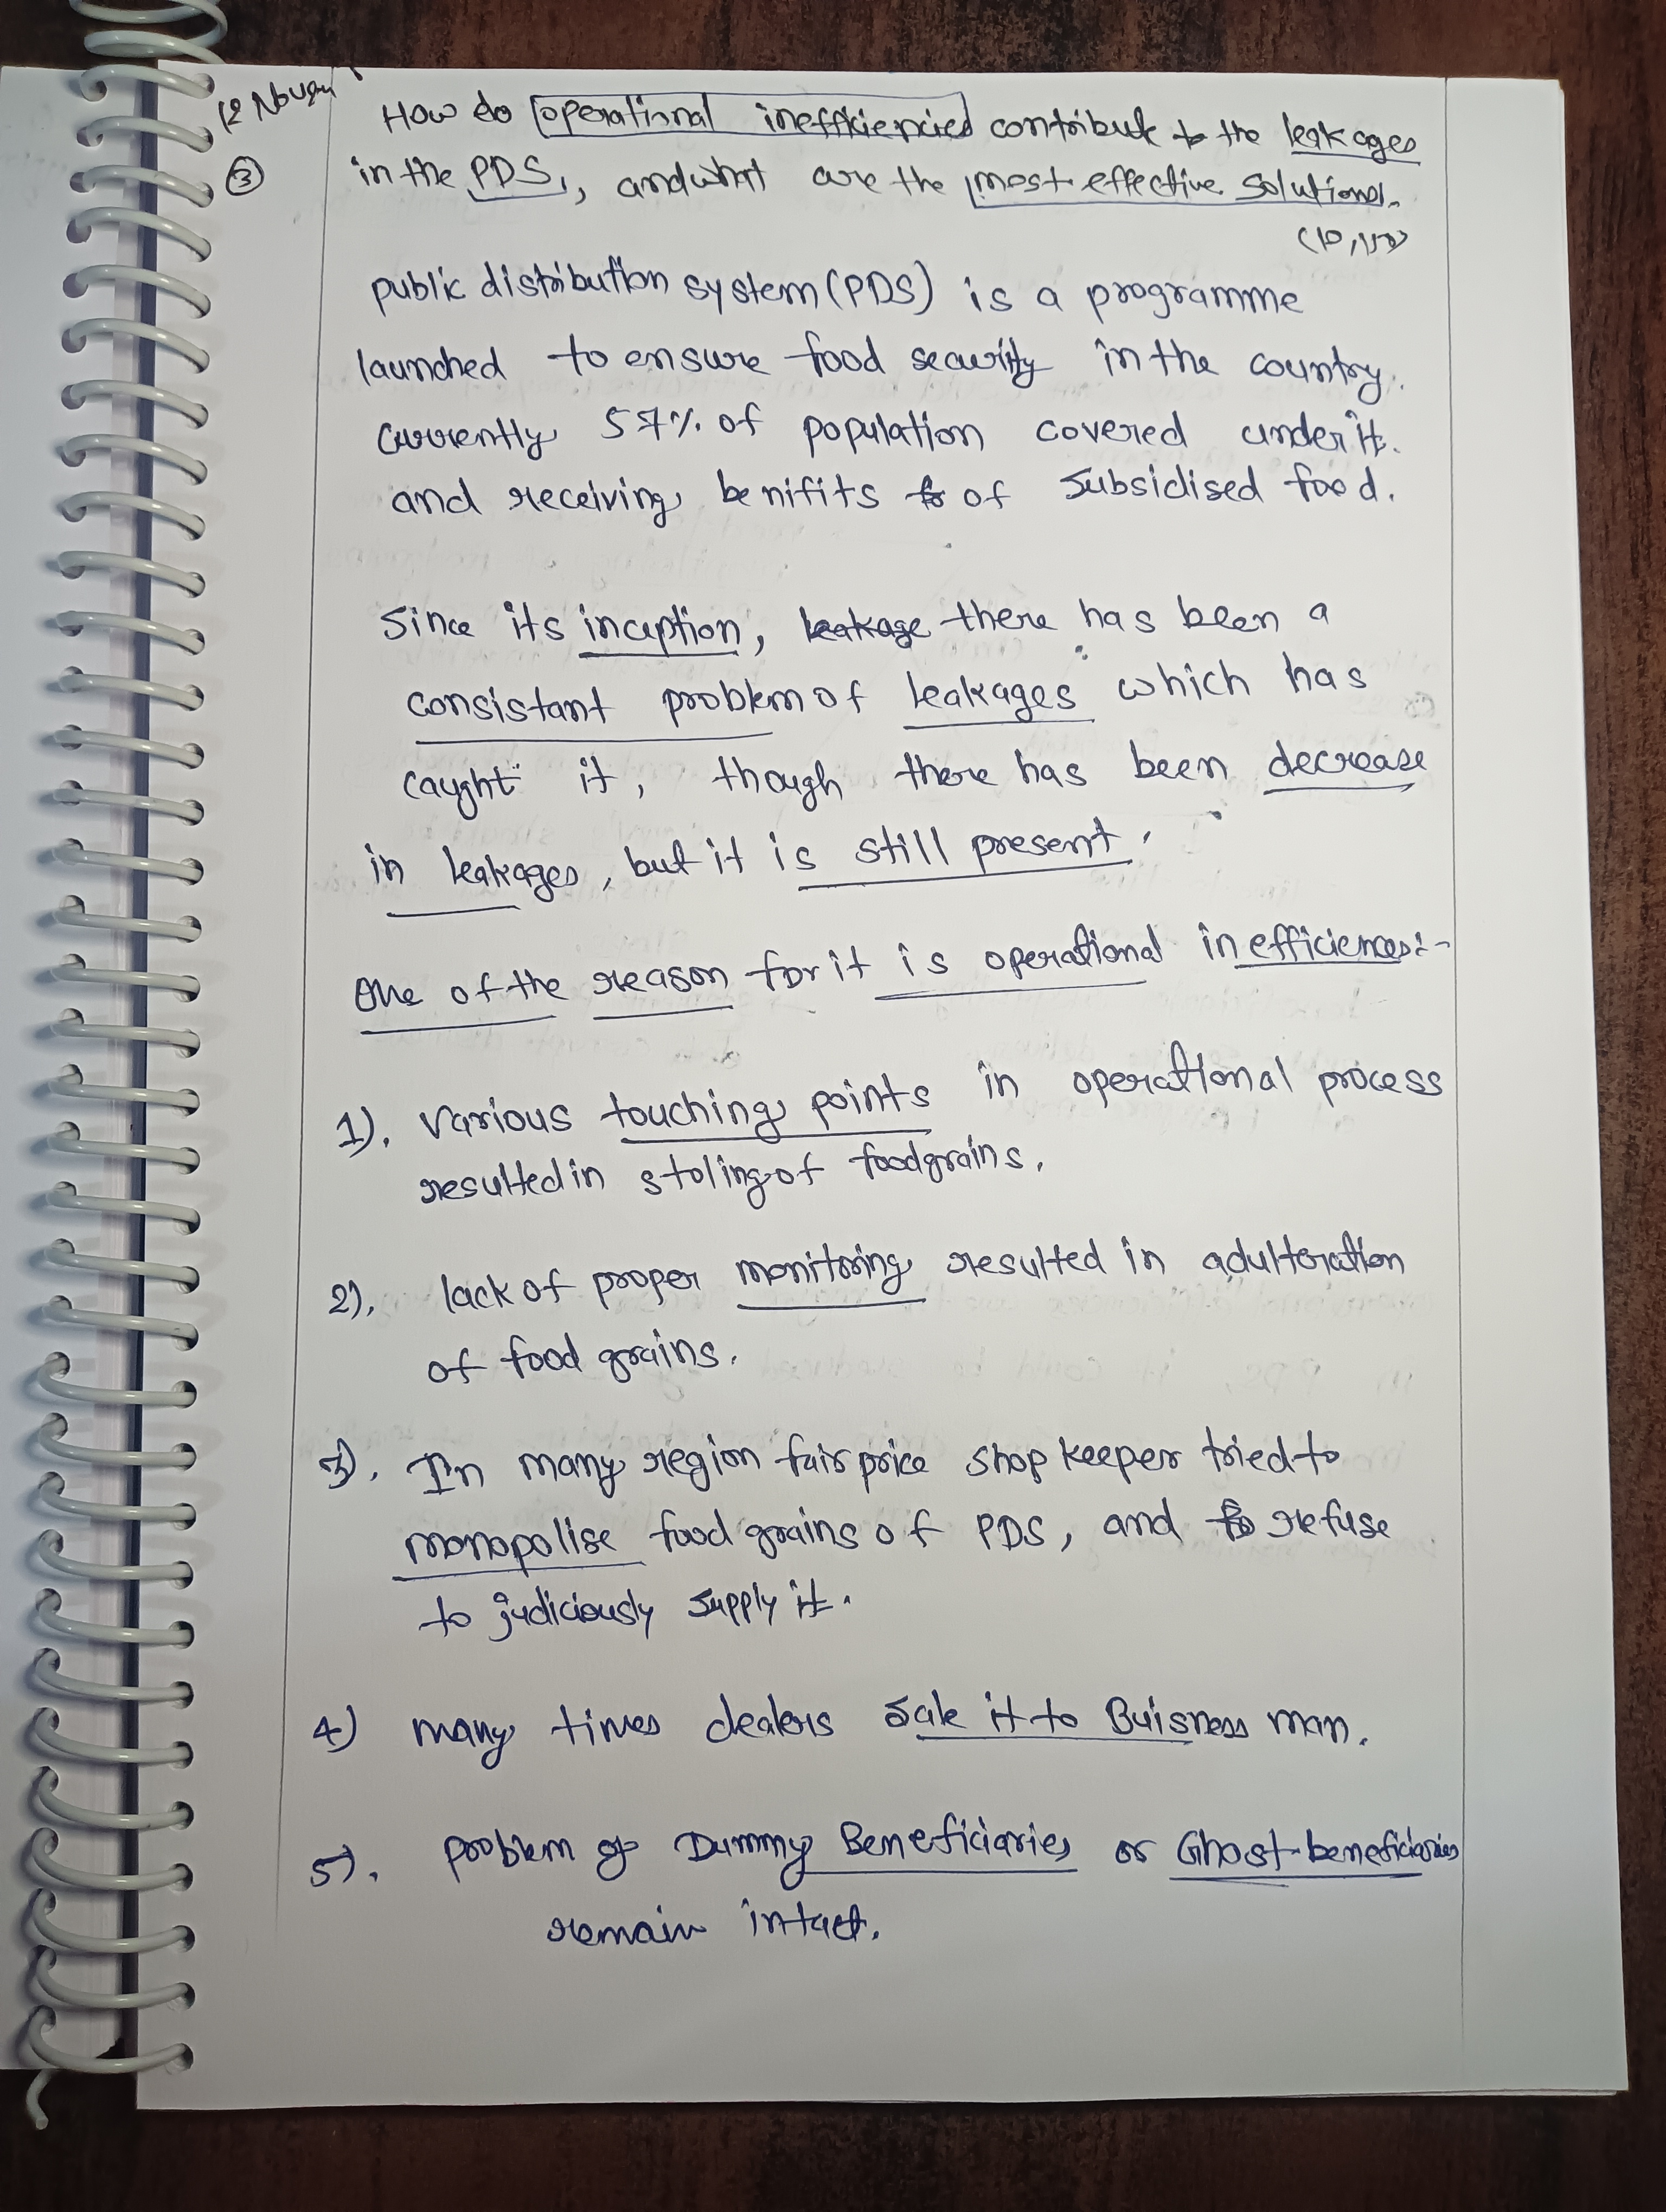 How do operational inefficiencies contribute to the leakages
③ in the PDS, and what are the most effective solutions.
public distribution system (PDS) is a programme
launched to ensure food security in the country.
currently 57% of population covered under it.
and receiving benifits of subsidised food.
Since its inception, leakage there has been a
consistant problem of leakages which has
caught it, though there has been decrease
in leakages, but it is still present.
One of the reason for it is operational inefficiences:-
1). various touching points in operational process
resulted in stoling of foodgrains.
2). lack of proper monitoring resulted in adulteration
of food grains.
3). In many region fair price shop keeper tried to
monopolise food grains of PDS, and refuse
to judiciously supply it.
4) many times dealers sale it to Buisness man.
5). problem of Dummy Beneficiaries or Ghost-beneficiaries
remain intact.